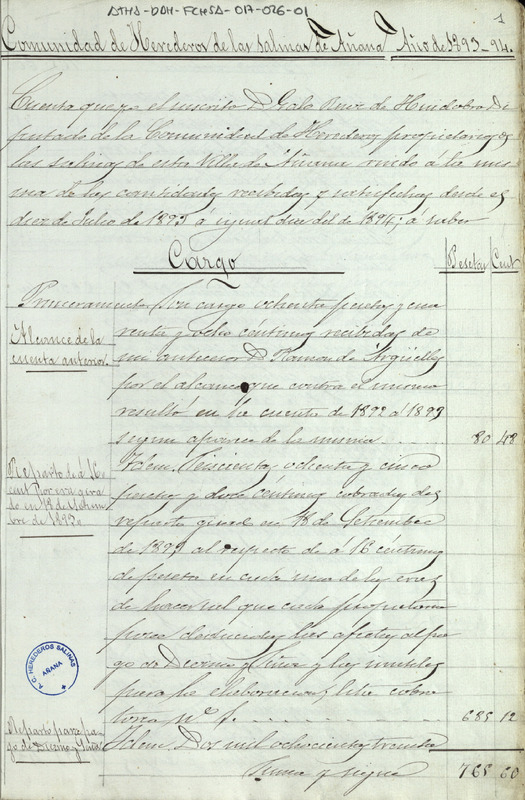 ATHA-DAH-FCHSA-017-026-01
1
Comunidad de Herederos de las salinas de Añana Año de 1893-94.
Cuenta que yo el suscrito D. Galo Ruiz de Huidobro Di
putado de la Comunidad de Herederos propietarios de
las salinas de esta Villa de Añana rindo a la mis
ma de las cantidades recibidas y satisfechas desde el
diez de Julio de 1893 á igual dia del de 1894; á saber
Cargo
Pesetas Cent
Primeramente Son cargo ochenta pesetas y cua
renta y ocho céntimos recibidas de
Alcance de la
cuenta anterior.
mi antecesor D. Ramon de Argüelles
por el alcance que contra el mismo
resultó en la cuenta de 1892 á 1893
segun aparece de la misma 80 48
Reparto de á 16
cent. por era gira
do en 18 de Setiem
bre de 1893.
Idem. Seiscientas ochenta y cinco
pesetas y doce céntimos cobradas del
reparto girado en 18 de Setiembre
de 1893 al respecto de á 16 céntimos
de peseta en cada una de las eras
de hacer sal que cada propietario
posee deducidas las afectas al pa
go de Diezmo y
para la elaboracion, lista cobra
toria Nº 1. 685 12
Reparto para pa
go de Diezmo y
Idem Dos mil ochocientas treinta
Suma y sigue 765 60
A.C. HEREDEROS SALINAS
AÑANA